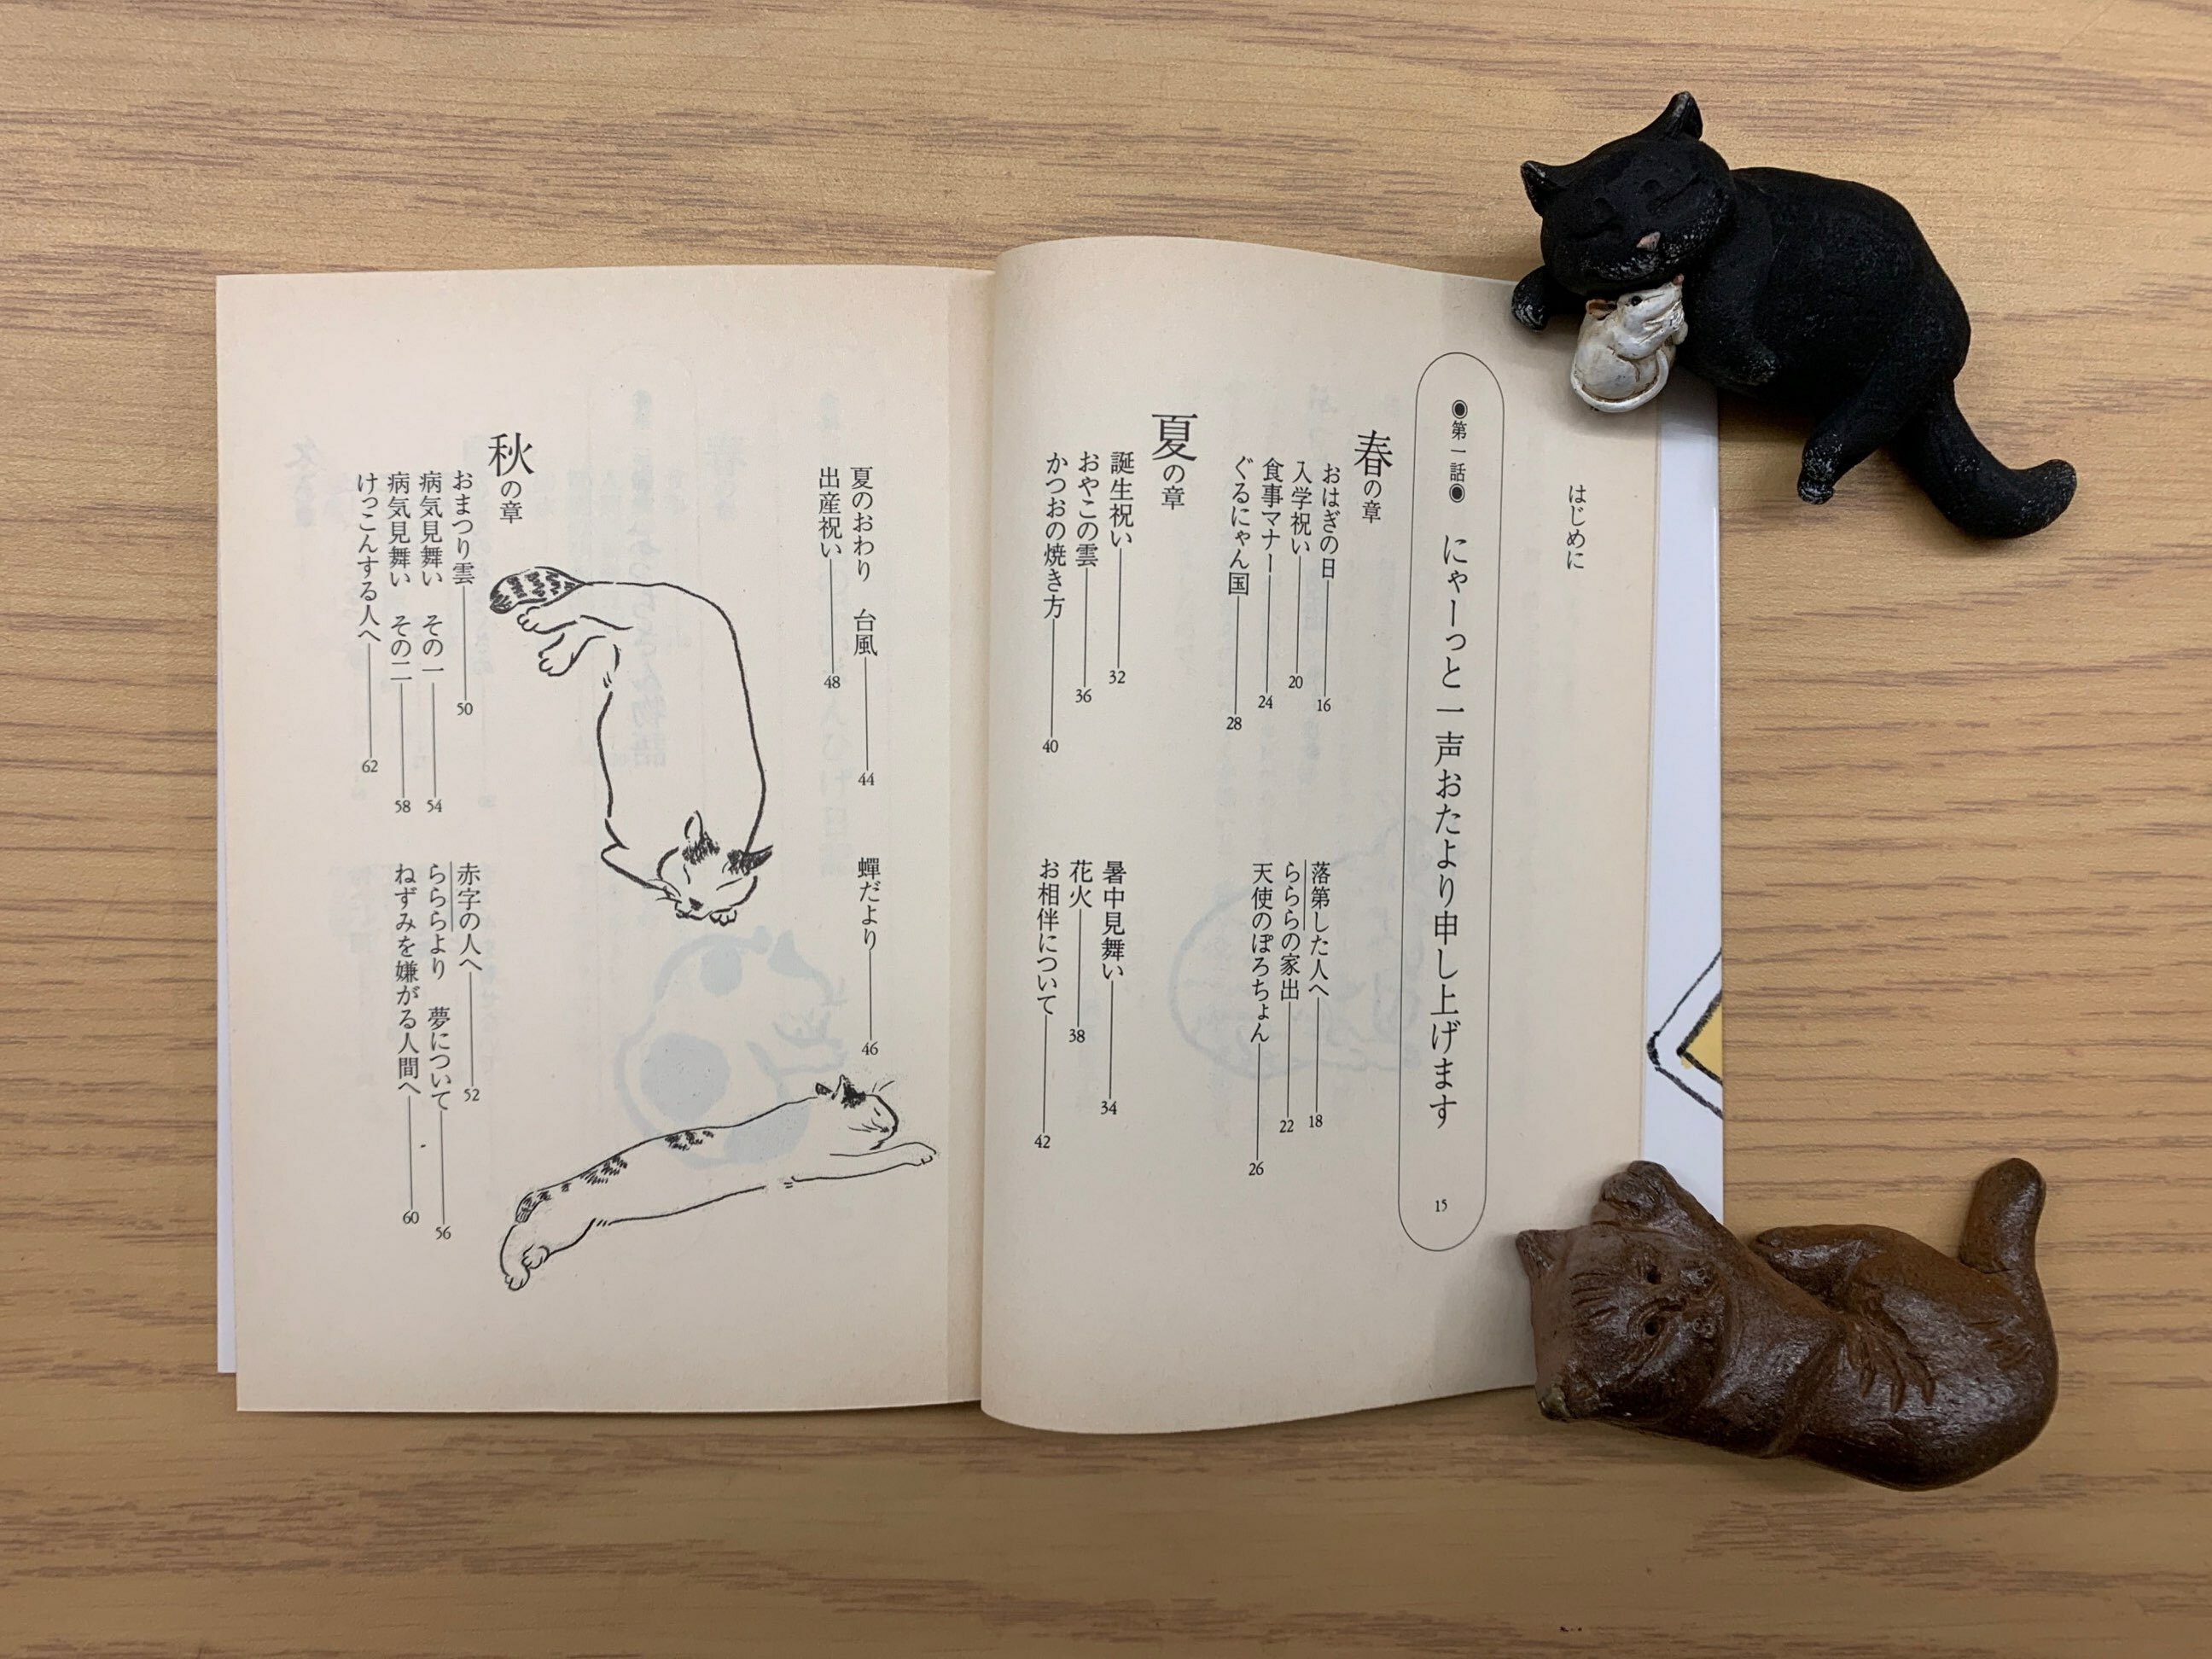 はじめに
◉第一話◉ にゃーっと一声おたより申し上げます 15
春の章
おはぎの日 16
落第した人へ 18
入学祝い 20
らららの家出 22
食事マナー 24
天使のぽろちょん 26
ぐるにゃん国 28
夏の章
誕生祝い 32
暑中見舞い 34
おやこの雲 36
花火 38
かつおの焼き方 40
お相伴について 42
夏のおわり 台風 44
蟬だより 46
出産祝い 48
秋の章
おまつり雲 50
赤字の人へ 52
病気見舞い その一 54
らららより 夢について 56
病気見舞い その二 58
ねずみを嫌がる人間へ 60
けっこんする人へ 62